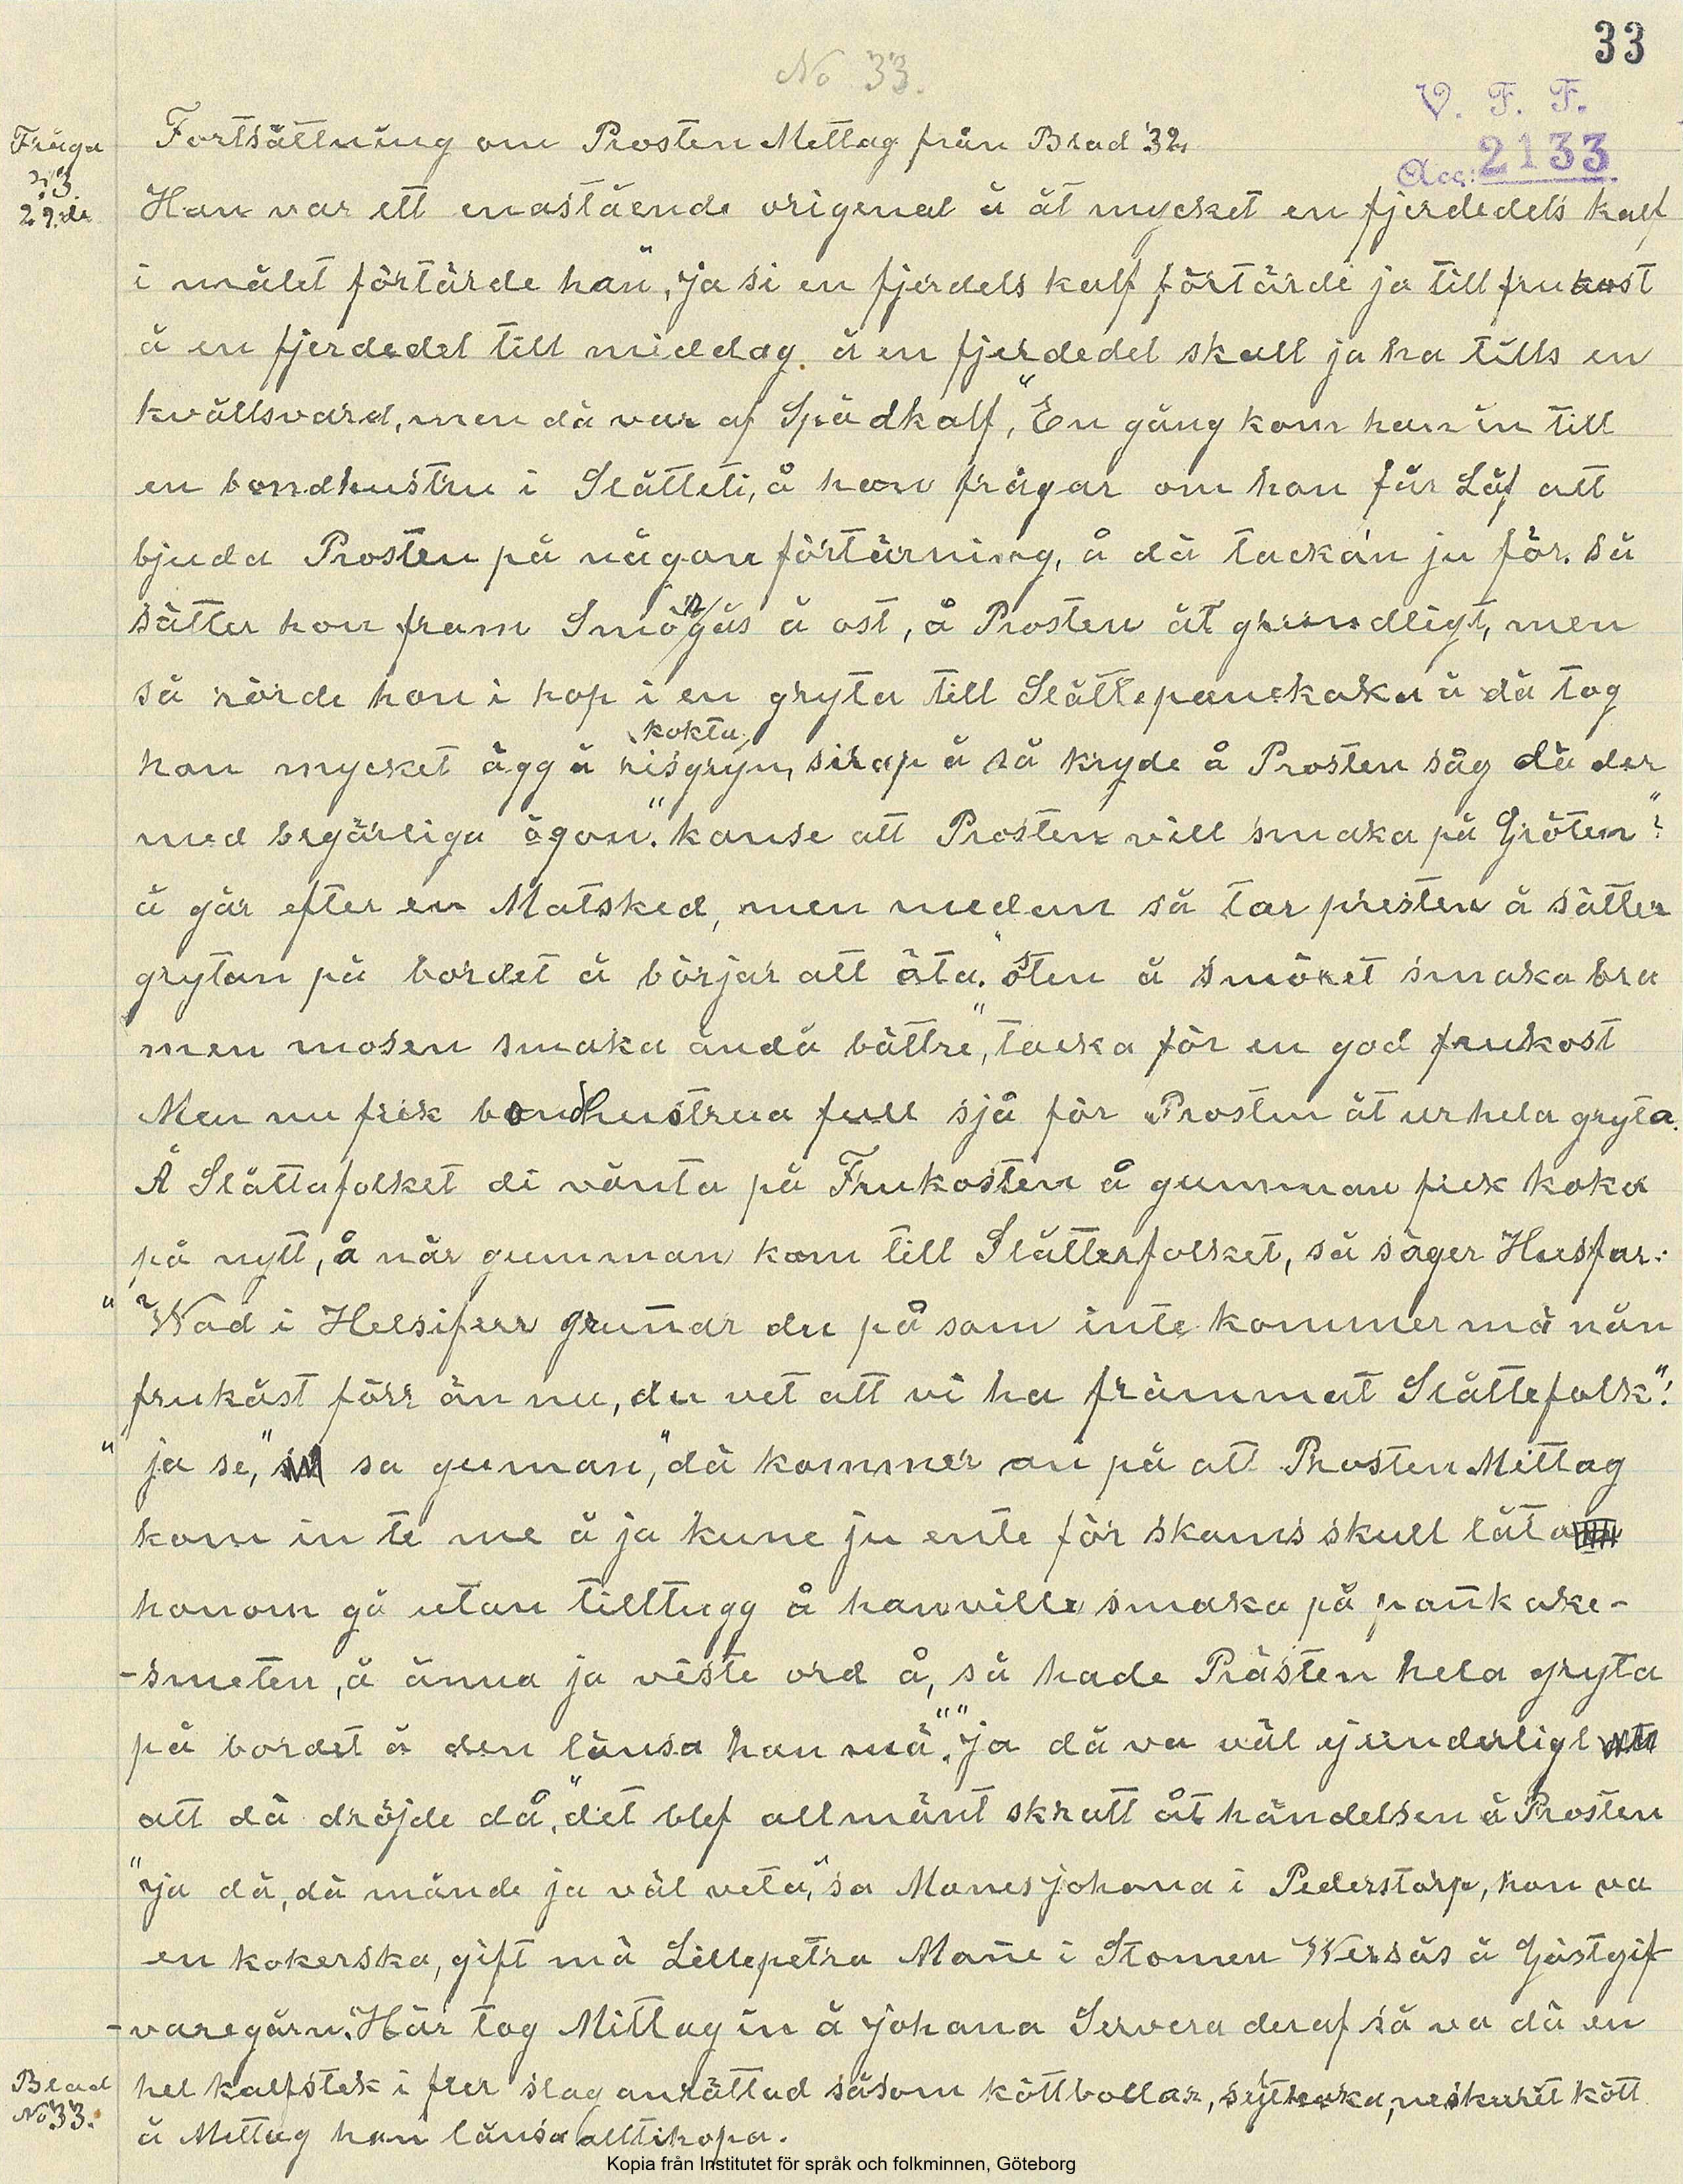 33
No 33.
V. F. F.
Acc: 2133
Fråga
33.
29.de
Fortsättning om Prosten Mettag från Blad 32.
Han var ett enastående origenal å åt mycket en fjerdedels kalf
i målet förtärde han, "ja si en fjerdels kalf förtärde ja till frukost
å en fjerdedel till middag å en fjerdedel skall ja ha tills en
kvällsvard, men dä var af Spädkalf," En gång kom han in till
en bondhustru i Slåtteti, å hon frågar om hon får Låf att
bjuda Prosten på någon förtärning, å dä tackán ju för. så
sätter hon fram Smörgås å ost, å Prosten åt grundligt, men
så rörde hon i hop i en gryta till Slåttepanekaka å då tog
hon mycket ägg å kokta risgryn, sirap å så kryde å Prosten såg dä der
med begärliga ögon. "kanse att Prosten vill smaka på Gröten"?
å går efter en Matsked, men medan så tar presten å sätter
grytan på bordet å börjar att äta. "osten å smöret smaka bra
men mosen smaka ändå bättre", tacka för en god frukost
Men nu fick bondhustrua full sjå för Prosten åt ur hela gryta.
Å Slåttafolket di vänta på Frukosten å gumman fick koka
på nytt, å när gumman kom till Slåtterfolket, så säger Husfar:
"Wad i Helsiferr grunar du på som inte kommer mä nån
frukåst förr än nu, du vet att vi ha främmat Slåttefolk"!
"ja se," sa guman, "dä kommer an på att Prosten Mittag
kom in te me å ja kune ju ente för skams skull låta
honom gå utan tilltugg å han ville smaka på pankake-
-smeten, å änna ja viste ord å, så hade Prästen hela gryta
på bordet å den länsa han mä." "Ja dä va väl ej underligt
att dä dröjde då," det blef allmänt skratt åt händelsen å Prosten
"ja dä, dä månde ja väl veta," sa Manesjohana i Pederstorp, hon va
en kokerska, gift mä Lillepetra Mañe i Stomen Wersås å Gästgif
-varegårn. "Här tog Mittag in å Johana Servera deraf så va dä en
hel kalfstek i fler slag anrättad såsom köttbollar, neskurit kött
å Mettag han länsa alltihopa.
Blad
No 33.
Kopia från Institutet för språk och folkminnen, Göteborg